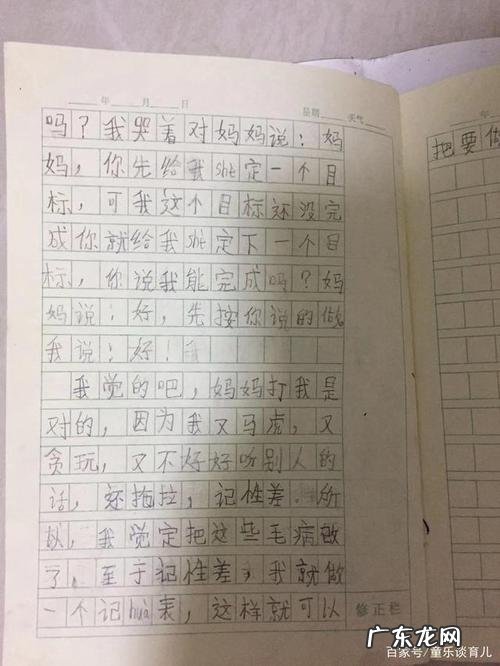 年 月 日 星期 天气
吗？我哭着对妈妈说：妈
妈，你先给我she定一个目
标，可我这个目标还没完
成你就给我she定下一个目
标，你说我能完成吗？妈
妈说：好，先按你说的做
我说：好！
我觉的吧，妈妈打我是
对的，因为我又马虎，又
贪玩，又不好好听别人的
话，还拖拉，记性差。所
以，我觉定把这些毛病改
了，至于记性差，我就做
一个记hua表，这样就可以
修正栏
年
把要做
百家号/童乐谈育儿
广东龙网